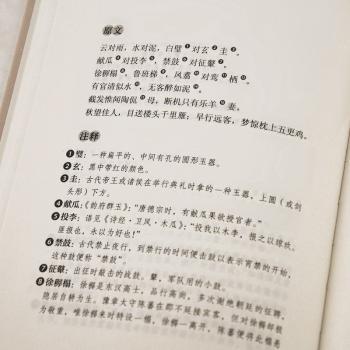 原文
云对雨，水对泥，白璧❶对玄❷圭❸。
献瓜❹对投李❺，禁鼓❻对征鼙❼。
徐穉榻❽，鲁班梯❾，凤翥❿对鸾栖⓫。
有官清似水，无客醉如泥⓬。
截发惟闻陶侃⓭母，断机只有乐羊⓮妻。
秋望佳人，目送楼头千里雁；早行远客，梦惊枕上五更鸡。
注释
❶璧：一种扁平的、中间有孔的圆形玉器。
❷玄：黑中带红的颜色。
❸圭：古代帝王或诸侯在举行典礼时拿的一种玉器，上圆（或剑
头形）下方。
❹献瓜：《韵府群玉》：“唐德宗时，有献瓜果欲授官者。”
❺投李：语见《诗经·卫风·木瓜》：“投我以木李，报之以琼玖。
匪报也，永以为好也！”
❻禁鼓：古代禁止夜行，到禁行的时间便击鼓以表示宵禁的开始，
这种鼓便称“禁鼓”。
❼征鼙：出征时敲击的战鼓。鼙，军队用的小鼓。
❽徐穉榻：徐穉是东汉高士，品行高尚，多次谢绝朝廷的征聘，
隐居自耕为生。豫章太守陈蕃在郡不延接宾客，但对徐穉却极
为敬重，唯徐穉来时特设一榻，徐穉一离开，陈蕃便将此榻悬